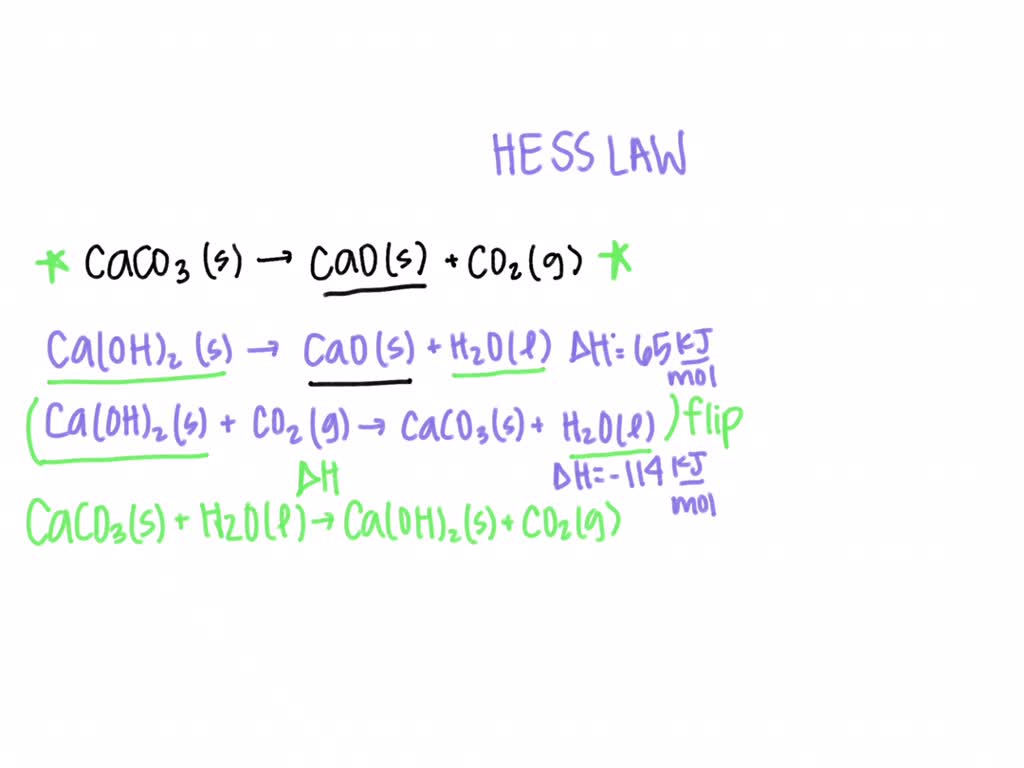 HESS LAW
* CaCO₃ (s) → CaO(s) + CO₂(g) *
Ca(OH)₂ (s) → CaO(s) + H₂O(l) ΔH°= 65 kJ/mol
(Ca(OH)₂(s) + CO₂(g) → CaCO₃(s) + H₂O(l)) flip
ΔH ΔH=-114 kJ/mol
CaCO₃(s) + H₂O(l) → Ca(OH)₂(s) + CO₂(g)